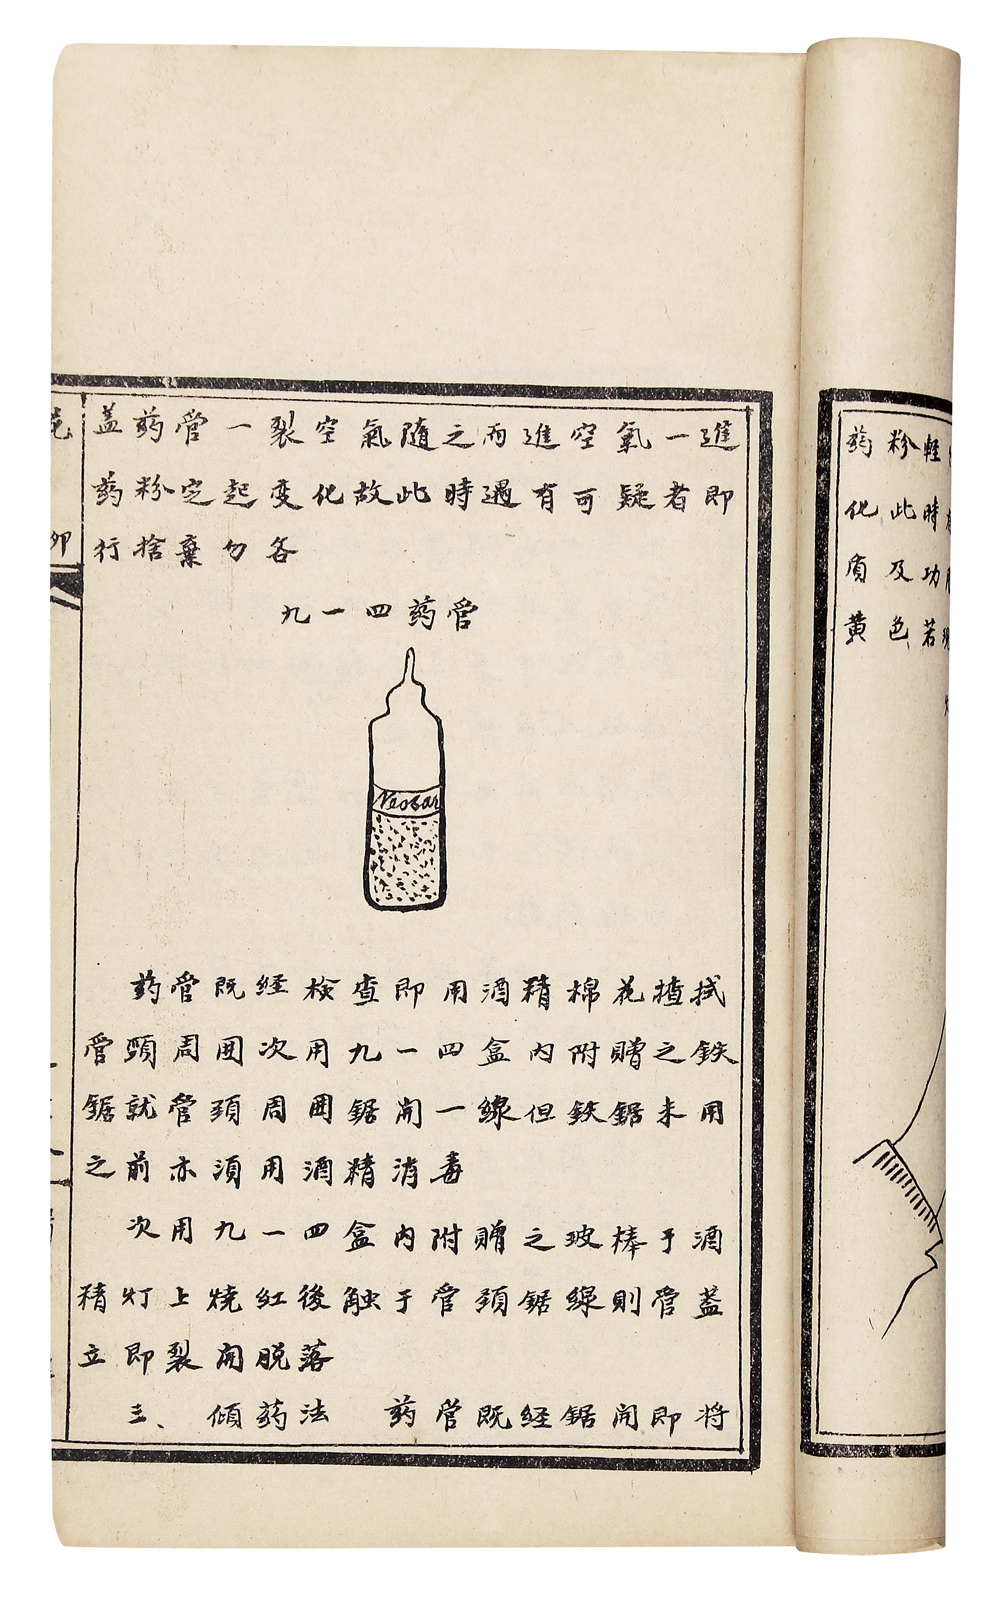 盖药管一裂空氣隨之而進空氣一進
药粉定起变化故此時遇有可疑者即
行捨棄勿吝
九一四药管
Neosar
药管既経檢查即用酒精棉花揸拭
管頸周囲次用九一四盒内附贈之鉄
鋸就管頚周囲鋸開一線但鉄鋸未用
之前亦湏用酒精消毒
次用九一四盒内附贈之玻棒于酒
精灯上燒紅後触于管頚鋸線則管蓋
立即裂開脱落
三、傾药法 药管既経鋸開即将
药粉輕
化此時
质及功
黄色若